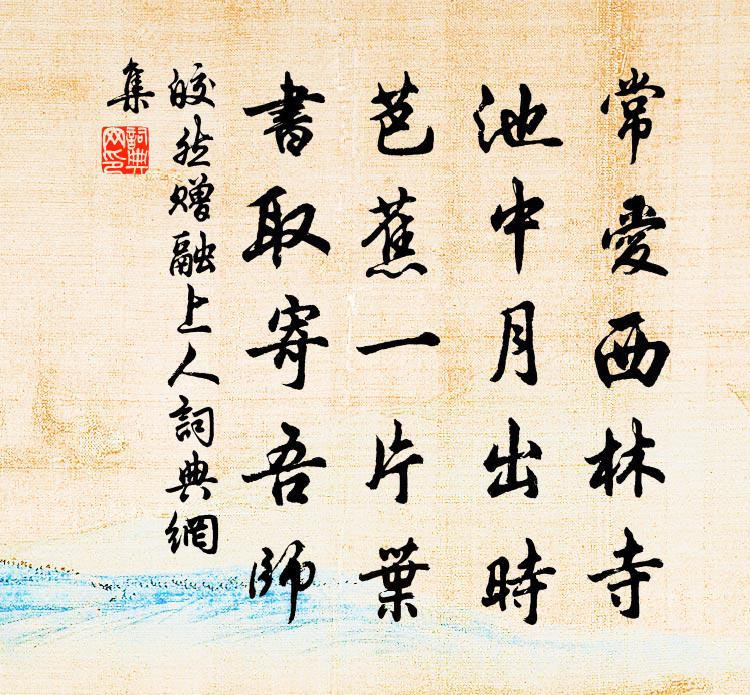 常愛西林寺
池中月出時
芭蕉一片葉
書取寄吾師
皎然贈融上人詞典網
集
詞典
网印